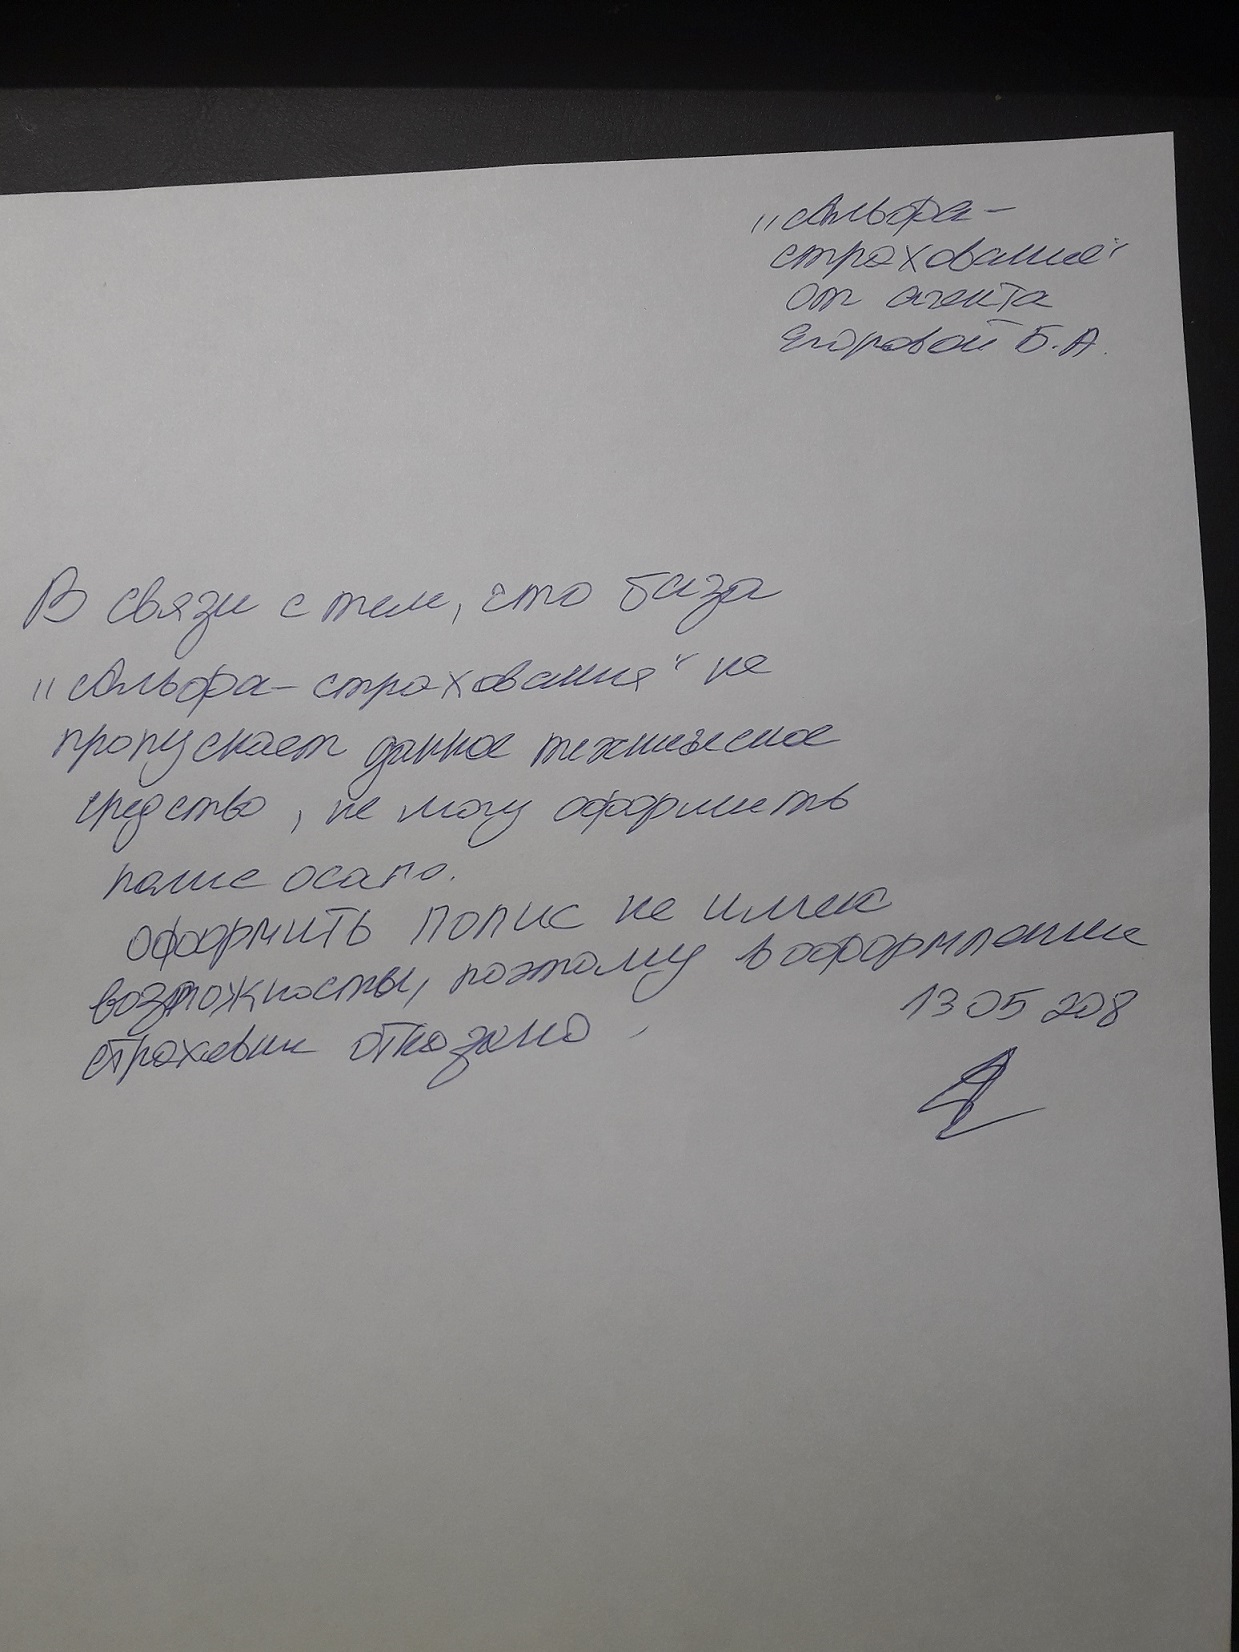 "Альфа-
страхование"
от агента
Егоровой Б.А.
В связи с тем, что база
"Альфа-страхования" не
пропускает данное техническое
средство, не могу оформить
полис осаго.
оформить полис не имея
возможности, поэтому в оформлении
страховки отказано.
13 05 208